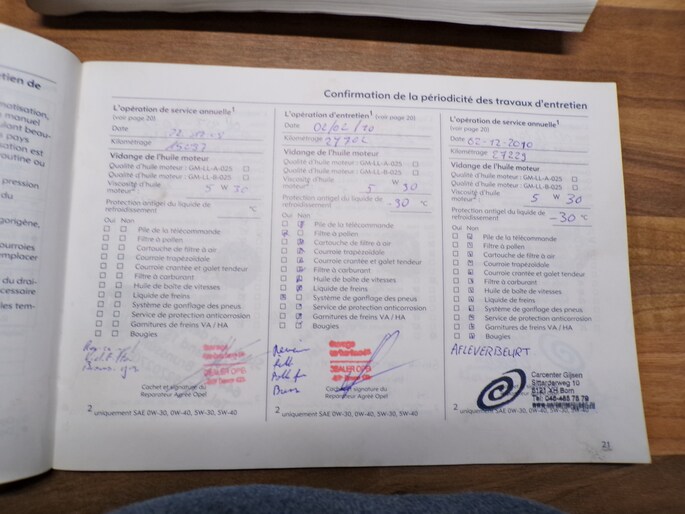 Confirmation de la périodicité des travaux d'entretien
L'opération de service annuelle¹
(voir page 20)
Date
Kilométrage
Vidange de l'huile moteur
Qualité d'huile moteur : GM-LL-A-025 □
Qualité d'huile moteur : GM-LL-B-025 □
Viscosité d'huile
moteur² 5 W 30
Protection antigel du liquide de
refroidissement °C
Oui Non
□ □ Pile de la télécommande
□ □ Filtre à pollen
□ □ Cartouche de filtre à air
□ □ Courroie trapézoïdale
□ □ Courroie crantée et galet tendeur
□ □ Filtre à carburant
□ □ Huile de boîte de vitesses
□ □ Liquide de freins
□ □ Système de gonflage des pneus
□ □ Service de protection anticorrosion
□ □ Garnitures de freins VA / HA
□ □ Bougies
DEALER OPEL
Cachet et signature du
Reparateur Agréé Opel
2 uniquement SAE 0W-30, 0W-40, 5W-30, 5W-40
L'opération d'entretien¹ (voir page 20)
Date 02/02/10
Kilométrage
Vidange de l'huile moteur
Qualité d'huile moteur : GM-LL-A-025 □
Qualité d'huile moteur : GM-LL-B-025 □
Viscosité d'huile
moteur² 5 W 30
Protection antigel du liquide de
refroidissement -30 °C
Oui Non
Pile de la télécommande
Filtre à pollen
Cartouche de filtre à air
Courroie trapézoïdale
Courroie crantée et galet tendeur
Filtre à carburant
Huile de boîte de vitesses
Liquide de freins
Système de gonflage des pneus
Service de protection anticorrosion
Garnitures de freins VA / HA
Bougies
DEALER OPEL
Cachet et signature du
Reparateur Agréé Opel
2 uniquement SAE 0W-30, 0W-40, 5W-30, 5W-40
L'opération de service annuelle¹
(voir page 20)
Date 02-12-2010
Kilométrage 27229
Vidange de l'huile moteur
Qualité d'huile moteur : GM-LL-A-025 □
Qualité d'huile moteur : GM-LL-B-025 □
Viscosité d'huile
moteur² 5 W 30
Protection antigel du liquide de
refroidissement -30 °C
Oui Non
Pile de la télécommande
Filtre à pollen
Cartouche de filtre à air
Courroie trapézoïdale
Courroie crantée et galet tendeur
Filtre à carburant
Huile de boîte de vitesses
Liquide de freins
Système de gonflage des pneus
Service de protection anticorrosion
Garnitures de freins VA / HA
Bougies
AFLEVERBEURT
Carcenter Gijsen
Sittarderweg 10
6121 XH Born
Tel: 046-485 75 79
2 uniquement SAE 0W-30, 0W-40, 5W-30, 5W-40
21